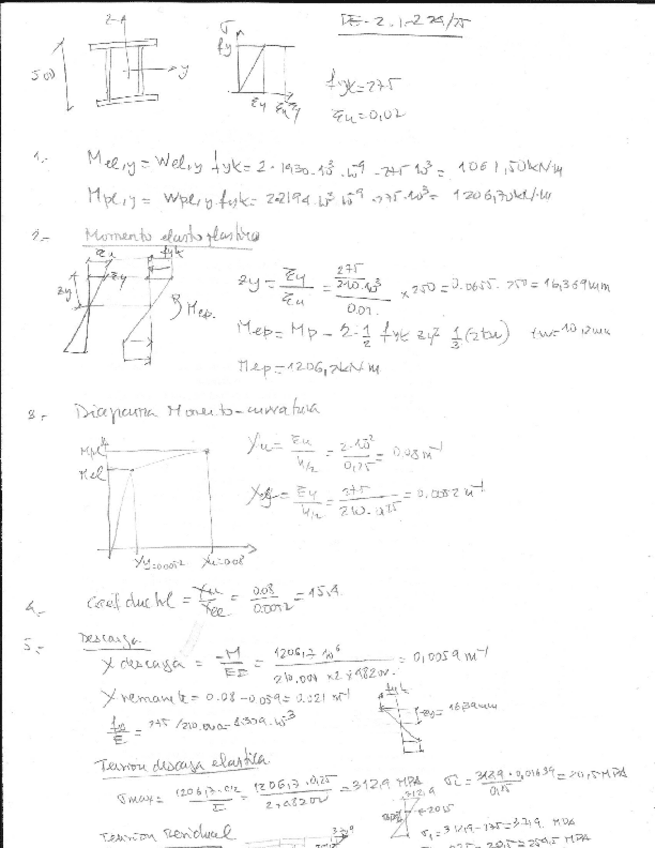 IE-2.1-2 25/75
z
y
500
σ
fy
εy
εu
fyk=275
εu=0,02
1.-
Mel,y = Wel,y fyk = 2·1930·10³·10⁻⁹·275·10³ = 1061,50kN·m
Mpl,y = Wpl,y·fyk = 2·2194·10³·10⁻⁹·275·10³ = 1206,70kN·m
2.- Momento elastoplastico
εu fyk
zy εy
Mep.
zy = εy/εu = (275/210·10³)/0.02 × 250 = 0.0655·250 = 16,369mm
Mep = Mp - 2·1/2 fyk zy² 1/3 (2tw) tw=10,2mm
Mep = 1206,2kN·m
3.- Diagrama Momento-curvatura
Mpl
Mel
χy=0.0052 χu=0.08
χu = εu/(h/2) = 2·10⁻²/0,25 = 0.08m⁻¹
χy = εy/(h/2) = 275/(210·0,25) = 0,0052m⁻¹
4.- Coef ductil = χu/χel = 0.08/0.0052 = 15,4
5.- Descarga
χ descarga = -M/EI = 1206,2 10⁶/(210.000 × 2 × 48200) = 0,0059m⁻¹
χ remanente = 0.08 - 0,059 = 0.021m⁻¹
fyk
zy = 16,39mm
fy/E = 275/210.000 = 1.309·10⁻³
Tension descarga elastica
σmax = (1206,7·h/2)/I = (1206,7·0,25)/(2·48200) = 312,9 MPA
σi = (312,9·0,01639)/0,25 = 20,5MPA
312,9
20,5
Tension Residual
37,9
σ1 = 312,9-275 = 37,9 MPA
275 - 20,5 = 254,5 MPA